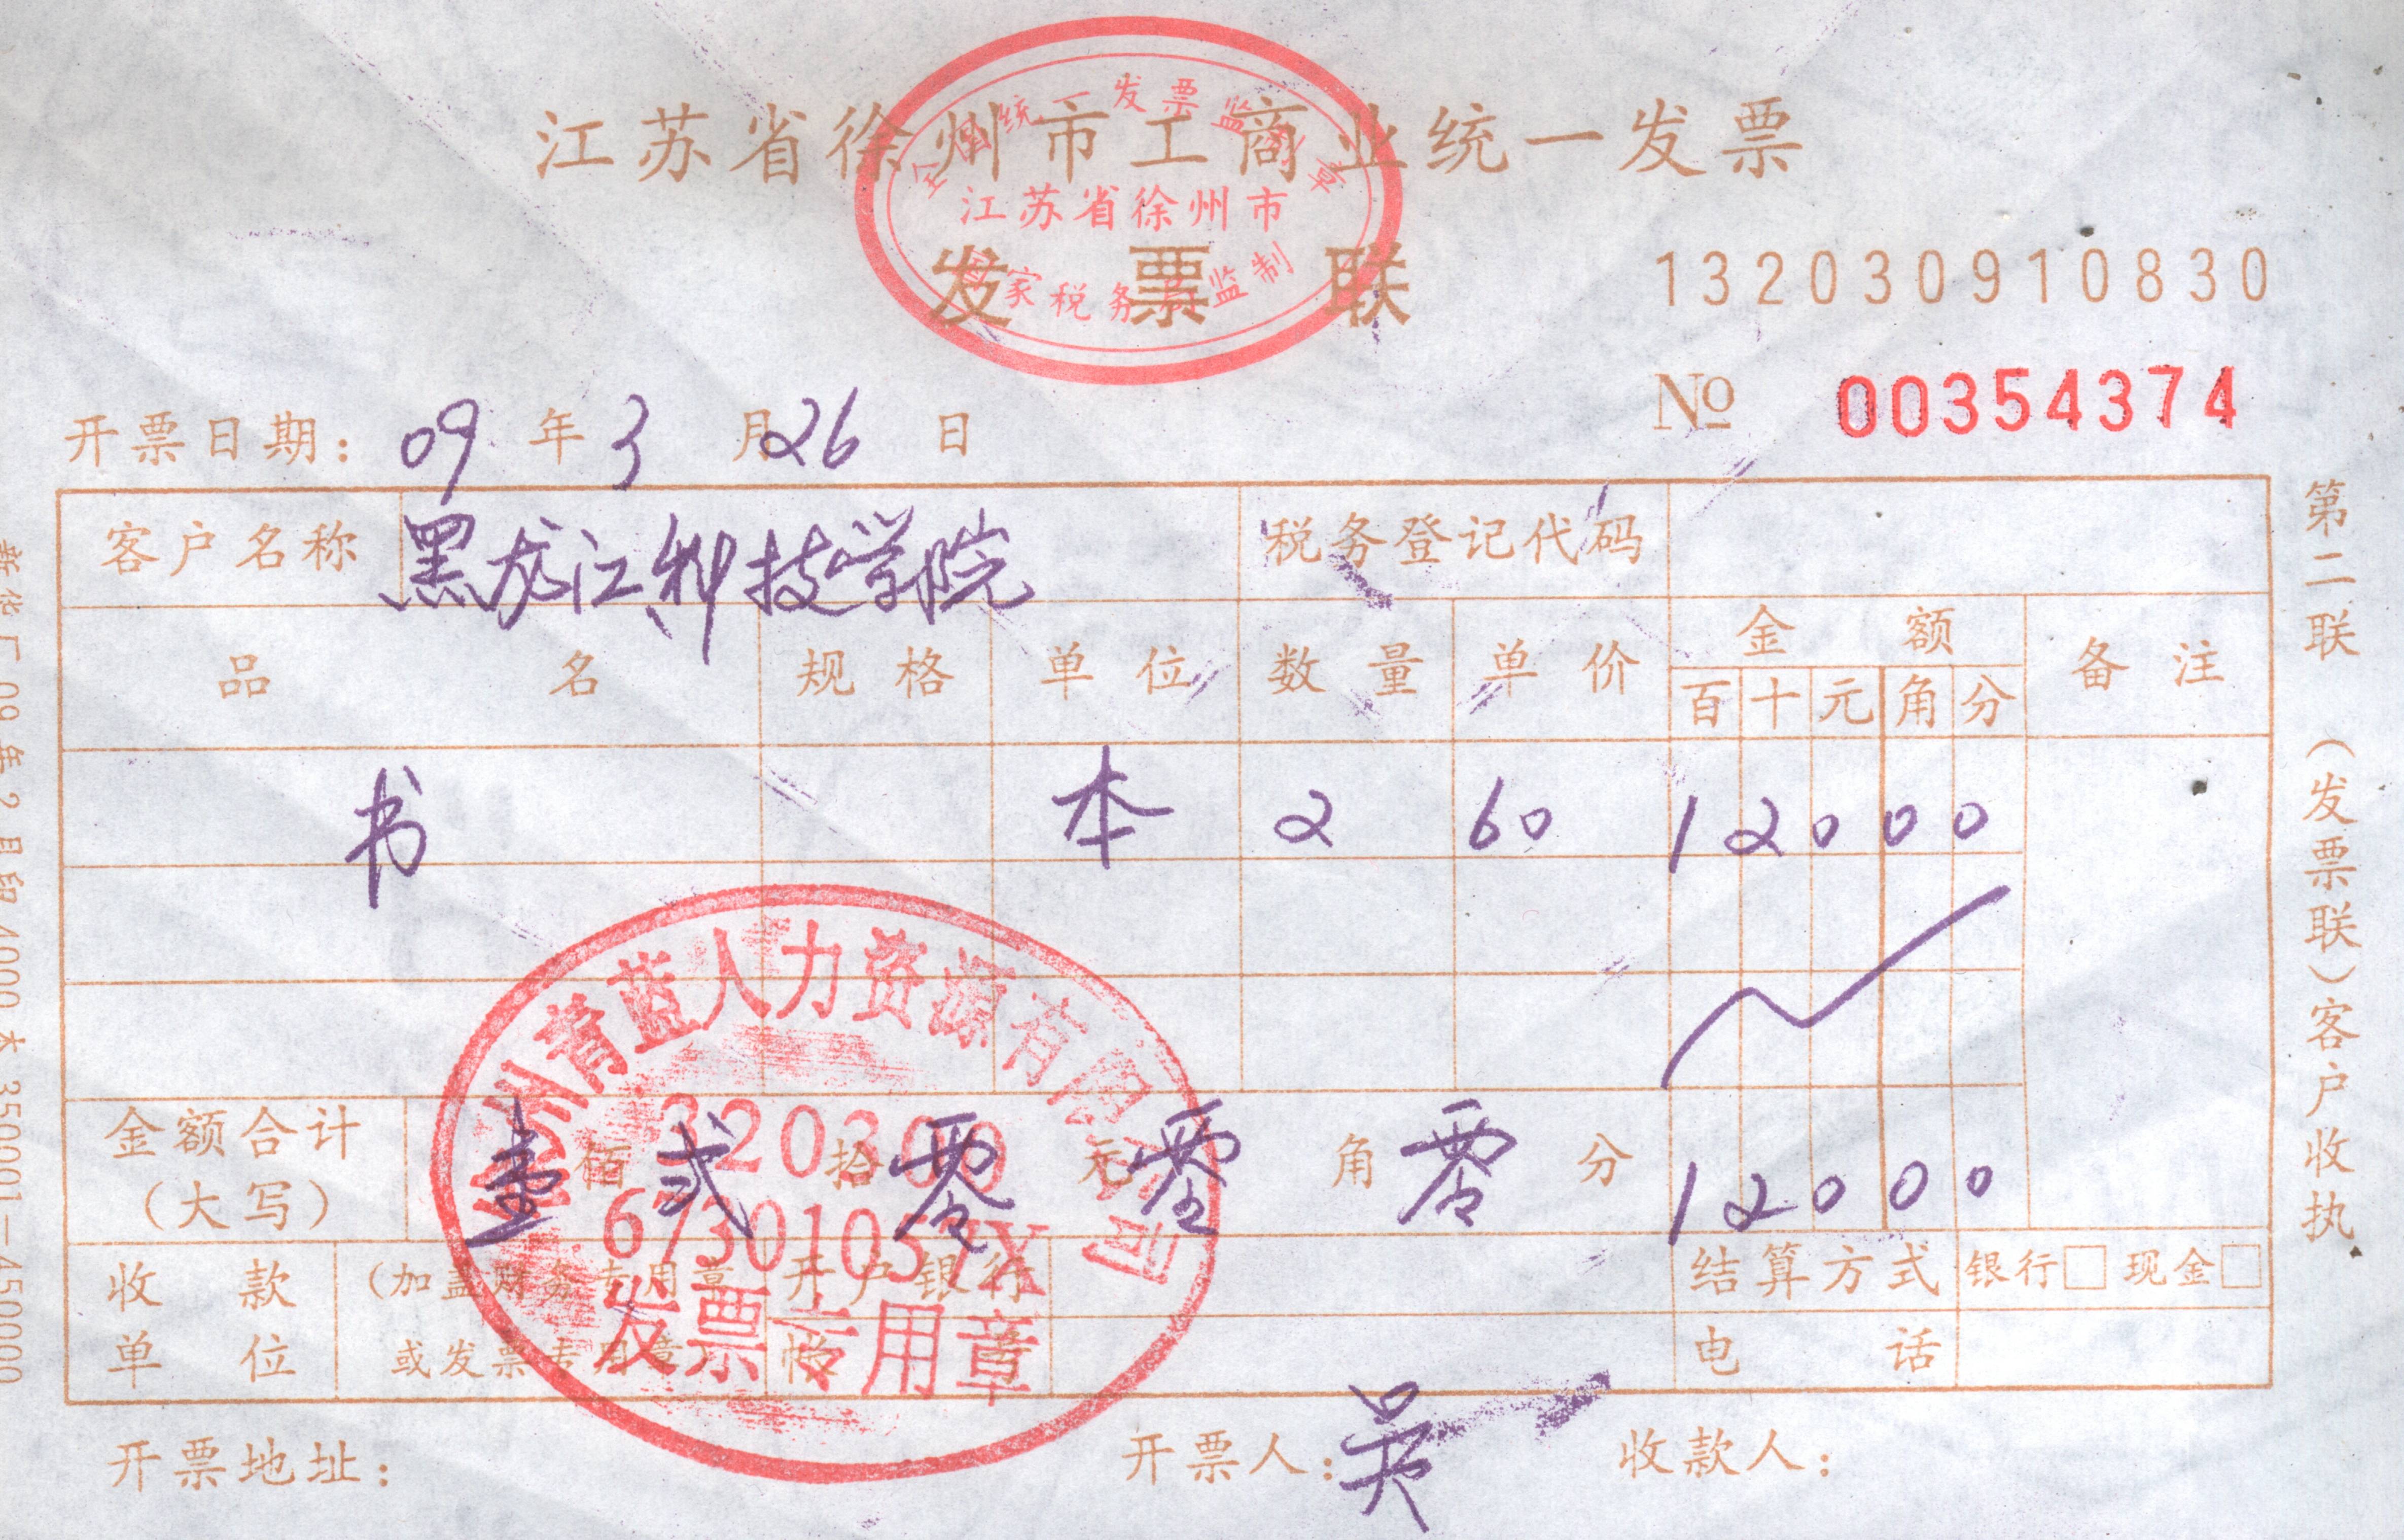 江苏省徐州市工商业统一发票
全国统一发票监制章
江苏省徐州市
国家税务局监制
发票联
132030910830
No 00354374
开票日期: 09 年 3 月 26 日
客户名称 黑龙江科技学院 税务登记代码
品名 规格 单位 数量 单价 金额 备注
百 十 元 角 分
书 本 2 60 1 2 0 0 0
金额合计 (大写) 壹 佰 贰 拾 零 元 零 角 零 分 1 2 0 0 0
收款单位 (加盖财务专用章 或发票专用章) 开户银行 结算方式 银行□ 现金□
帐号 电话
州青蓝人力资源有限公司
320300
67301057X
发票专用章
开票地址: 开票人: 吴 收款人:
第二联 (发票联) 客户收执
09年2月印4000本 350001-450000